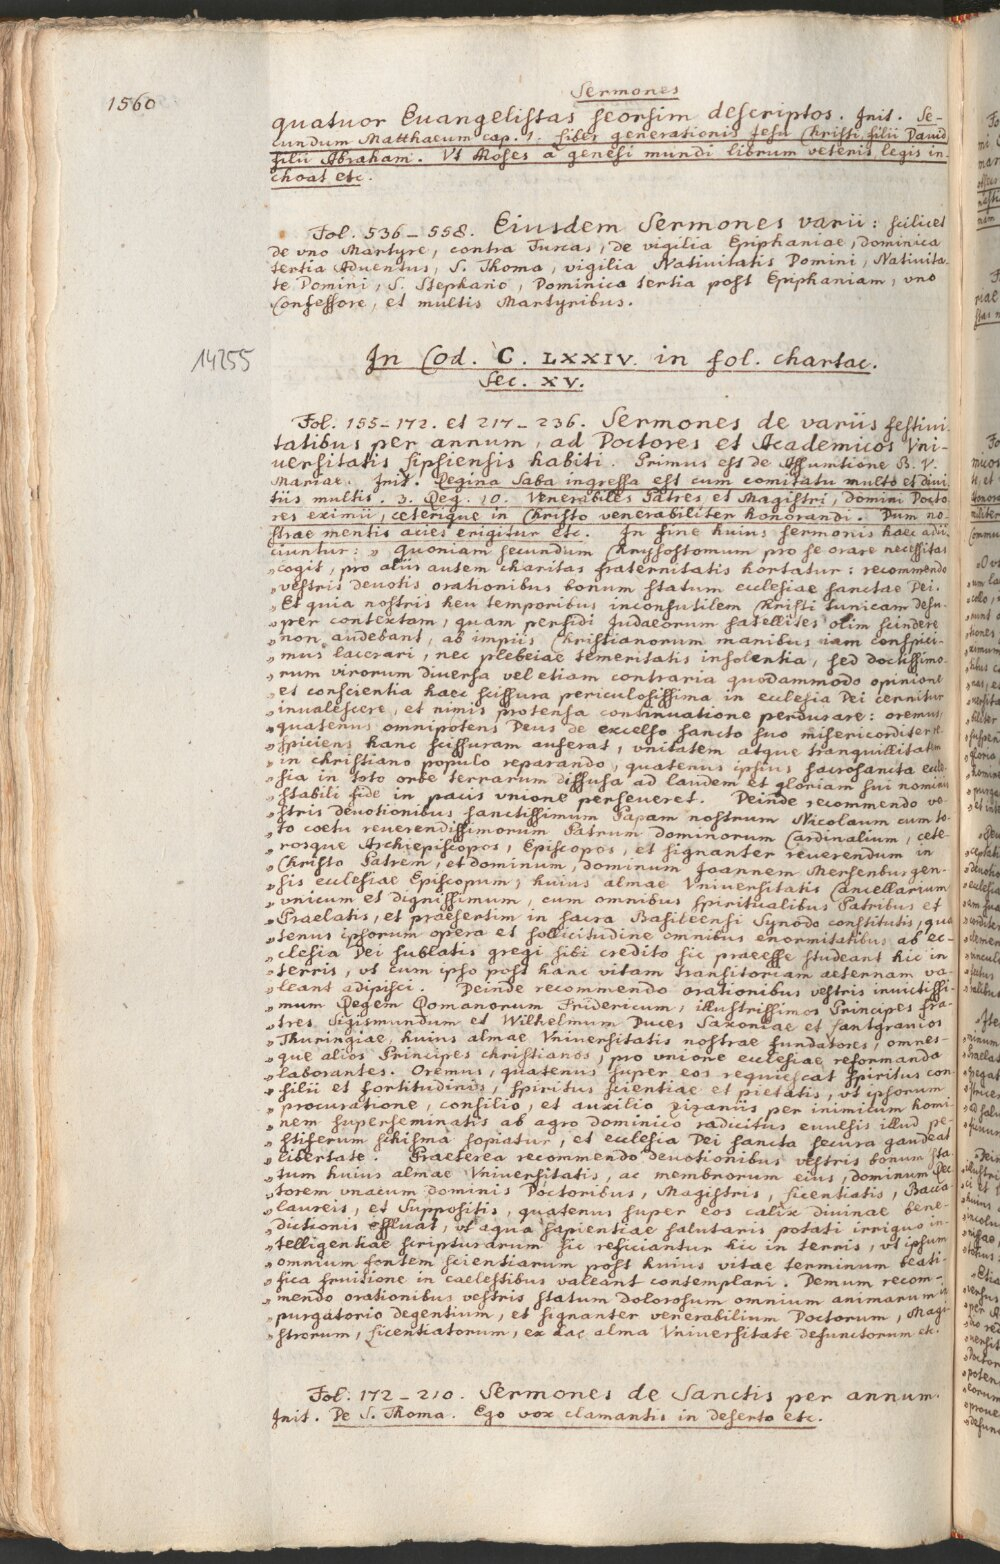 1560
Sermones
quatuor Euangelistas seorsim descriptos. Init. Se-
cundum Matthaeum cap. 1. Liber generationis Jesu Christi filii David
filii Abraham. Vt Moses a genesi mundi librum veteris legis in-
choat etc.
Fol. 536–558. Eiusdem Sermones varii: scilicet
de vno Martyre, contra Turcas, de vigilia Epiphaniae, dominica
tertia Aduentus, S. Thoma, vigilia Natiuitatis Domini, Natiuita-
te Domini, S. Stephano, Dominica tertia post Epiphaniam, vno
Confessore, et multis Martyribus.
14255
In Cod. C. LXXIV. in fol. chartac.
Sec. XV.
Fol. 155–172. et 217–236. Sermones de variis festiui-
tatibus per annum, ad Doctores et Academicos Vni-
uersitatis Lipsiensis habiti. Primus est de Assumtione B. V.
Mariae. Init. Regina Saba ingressa est cum comitatu multo et diui-
tiis multis. 3. Reg. 10. Venerabiles Patres et Magistri, domini Docto-
res eximii, ceterique in Christo venerabiliter honorandi. Dum no-
strae mentis acies erigitur etc. In fine huius sermonis haec adii-
ciuntur: „Quoniam secundum Chrysostomum pro se orare necessitas
„cogit, pro aliis autem charitas fraternitatis hortatur: recommendo
„vestris deuotis orationibus bonum statum ecclesiae sanctae Dei.
„Et quia nostris heu temporibus inconsutilem Christi tunicam desu-
„per contextam, quam perfidi Judaeorum satellites olim scindere
„non audebant, ab impiis Christianorum manibus iam conspici-
„mus lacerari, nec plebeiae temeritatis insolentia, sed doctissimo-
„rum virorum diuersa vel etiam contraria quodammodo opinione
„et conscientia haec scissura periculosissima in ecclesia Dei cernitur
„inualescere, et nimis protensa continuatione perdurare: oremus
„quatenus omnipotens Deus de excelso sancto suo misericorditer re-
„spiciens hanc scissuram auferat, vnitatem atque tranquillitatem
„in christiano populo reparando, quatenus ipsius sacrosancta eccle-
„sia in toto orbe terrarum diffusa ad laudem et gloriam sui nominis
„stabili fide in pacis vnione perseueret. Deinde recommendo ve-
„stris deuotionibus sanctissimum Papam nostrum Nicolaum cum to-
„to coetu reuerendissimorum Patrum dominorum Cardinalium, cete-
„rosque Archiepiscopos, Episcopos, et signanter reuerendum in
„Christo Patrem, et dominum, dominum Joannem Mersenburgen-
„sis ecclesiae Episcopum, huius almae Vniuersitatis Cancellarium
„vnicum et dignissimum, cum omnibus spiritualibus Patribus et
„Praelatis, et praesertim in sacra Basileensi Synodo constitutis, qua-
„tenus ipsorum opera et sollicitudine omnibus enormitatibus ab ec-
„clesia Dei sublatis gregi sibi credito sic praeesse studeant hic in
„terris, vt cum ipso post hanc vitam transitoriam aeternam va-
„leant adipisci. Deinde recommendo orationibus vestris inuictissi-
„mum Regem Romanorum Fridericum, illustrissimos Principes fra-
„tres Sigismundum et Wilhelmum Duces Saxoniae et Lantgravios
„Thuringiae, huius almae Vniuersitatis nostrae fundatores, omnes-
„que alios Principes christianos, pro vnione ecclesiae reformanda
„laborantes. Oremus, quatenus super eos requiescat spiritus con-
„silii et fortitudinis, spiritus scientiae et pietatis, vt ipsorum
„procuratione, consilio, et auxilio zizaniis per inimicum homi-
„nem superseminatis ab agro dominico radicitus euulsis illud pe-
„stiferum schisma sopiatur, et ecclesia Dei sancta secura gaudeat
„libertate. Praeterea recommendo deuotionibus vestris bonum sta-
„tum huius almae Vniuersitatis, ac membrorum eius, dominum Rec-
„torem vnacum dominis Doctoribus, Magistris, Licentiatis, Bacca-
„laureis, et Suppositis, quatenus super eos calix diuinae bene-
„dictionis effluat, vt aqua sapientiae salutaris potati irriguo in-
„telligentiae scripturarum sic reficiantur hic in terris, vt ipsum
„omnium fontem scientiarum post huius vitae terminum beati-
„fica fruitione in caelestibus valeant contemplari. Demum recom-
„mendo orationibus vestris statum dolorosum omnium animarum in
„purgatorio degentium, et signanter venerabilium Doctorum, Magi-
„strorum, Licentiatorum, ex hac alma Vniuersitate defunctorum etc.
Fol. 172–210. Sermones de Sanctis per annum.
Init. De S. Thoma. Ego vox clamantis in deserto etc.